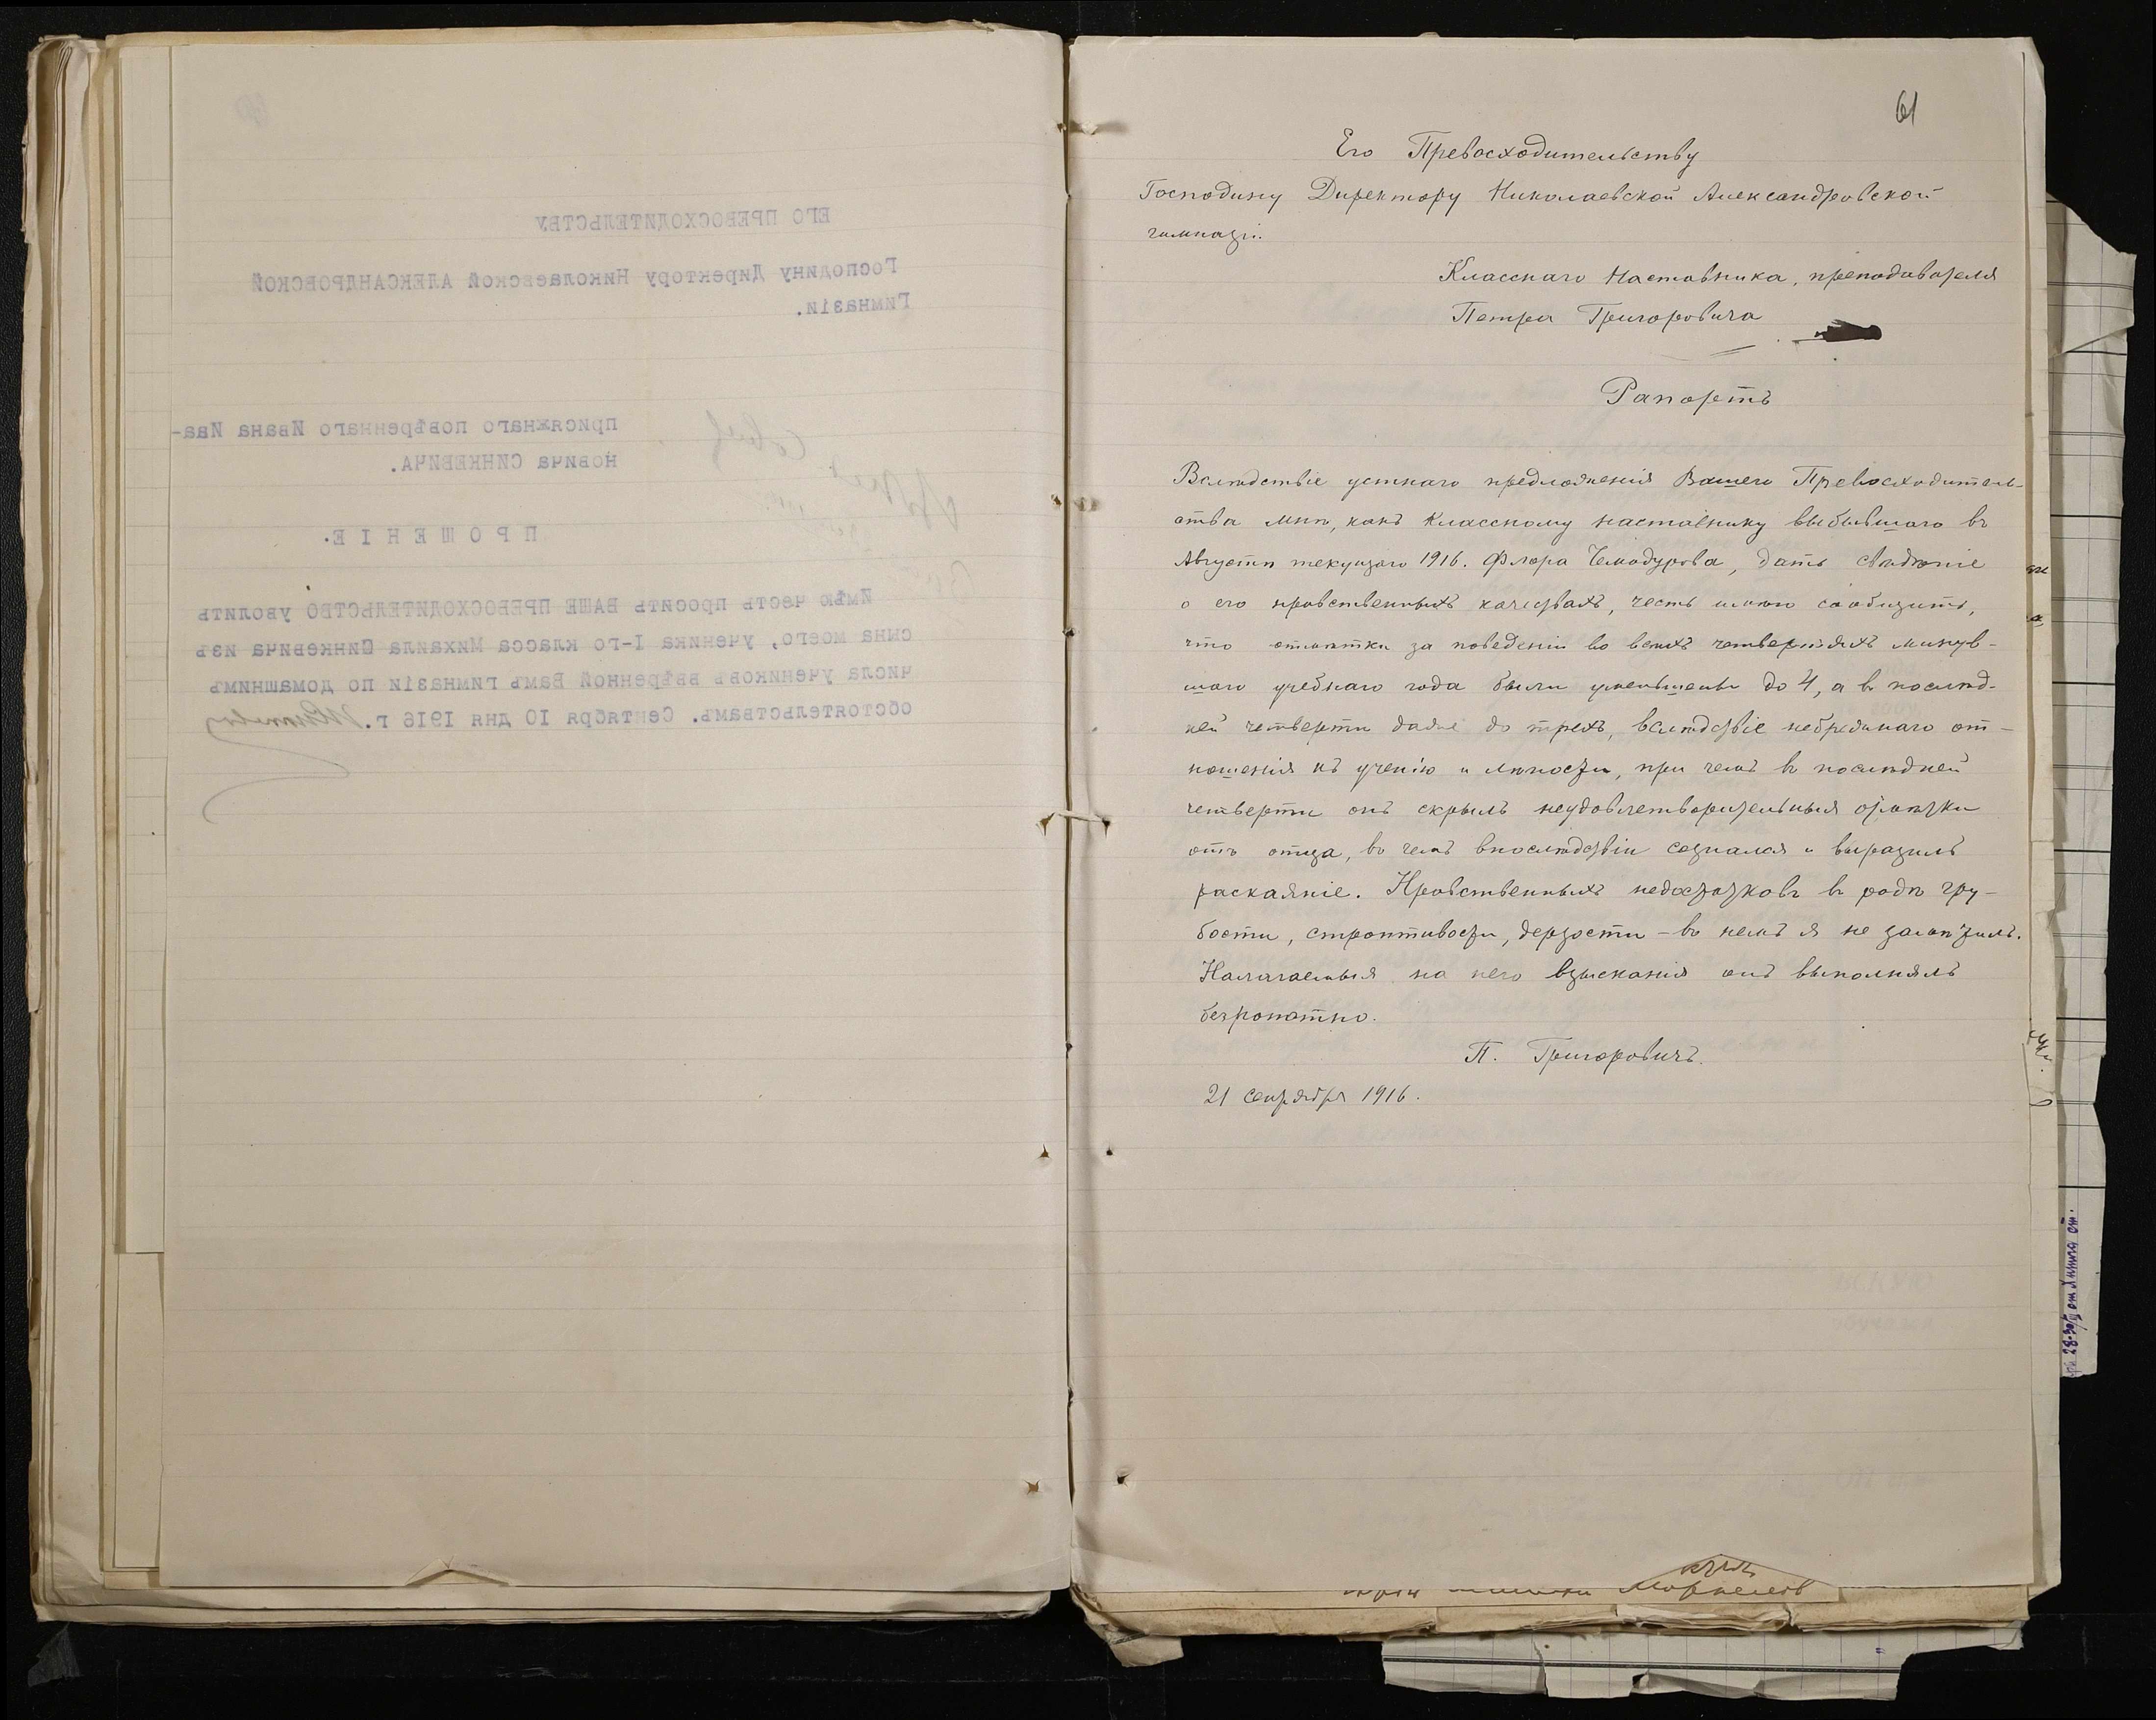 ЕГО ПРЕВОСХОДИТЕЛЬСТВУ
Господину Директору Николаевской АЛЕКСАНДРОВСКОЙ
Гимназіи.
присяжнаго повѣреннаго Ивана Ива-
новича СИНКЕВИЧА.
ПРОШЕНІЕ.
Имѣю честь просить ВАШЕ ПРЕВОСХОДИТЕЛЬСТВО уволить
сына моего, ученика I-го класса Михаила Синкевича изъ
числа учениковъ ввѣренной Вамъ гимназіи по домашнимъ
обстоятельствамъ. Сентября 10 дня 1916 г.
61
Его Превосходительству
Господину Директору Николаевской Александровской
гимназіи.
Класснаго Наставника, преподавателя
Петра Григоровича
Рапортъ
Вслѣдствіе устнаго предложенія Вашего Превосходитель-
ства мнѣ, какъ классному наставнику выбывшаго въ
Августѣ текущаго 1916. Флора Чемодурова, дать свѣдѣніе
о его нравственныхъ качествахъ, честь имѣю сообщить,
что отмѣтки за поведеніе во всѣхъ четвертяхъ минув-
шаго учебнаго года были уменьшены до 4, а въ послѣд-
ней четверти даже до трехъ, вслѣдствіе небрежнаго от-
ношенія къ ученію и лѣности, при чемъ въ послѣдней
четверти онъ скрылъ неудовлетворительныя отмѣтки
отъ отца, въ чемъ впослѣдствіи сознался и выразилъ
раскаяніе. Нравственныхъ недостатковъ въ родѣ гру-
бости, строптивости, дерзости - въ немъ я не замѣтилъ.
Налагаемыя на него взысканія онъ выполнялъ
безропотно.
П. Григоровичъ.
21 сентября 1916.